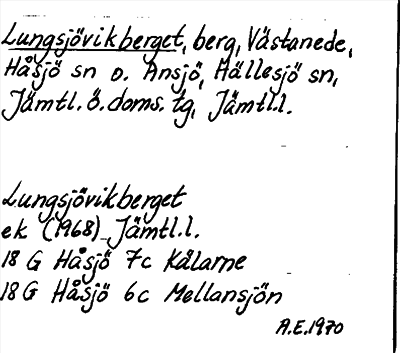 Lungsjövikberget, berg, Västanede,
Håsjö sn o. Ansjö, Hällesjö sn,
Jämtl. ö. doms. tg, Jämtl.l.
Lungsjövikberget
ek (1968) Jämtl.l.
18 G Håsjö 7c Kälarne
18 G Håsjö 6c Mellansjön
A.E.1970